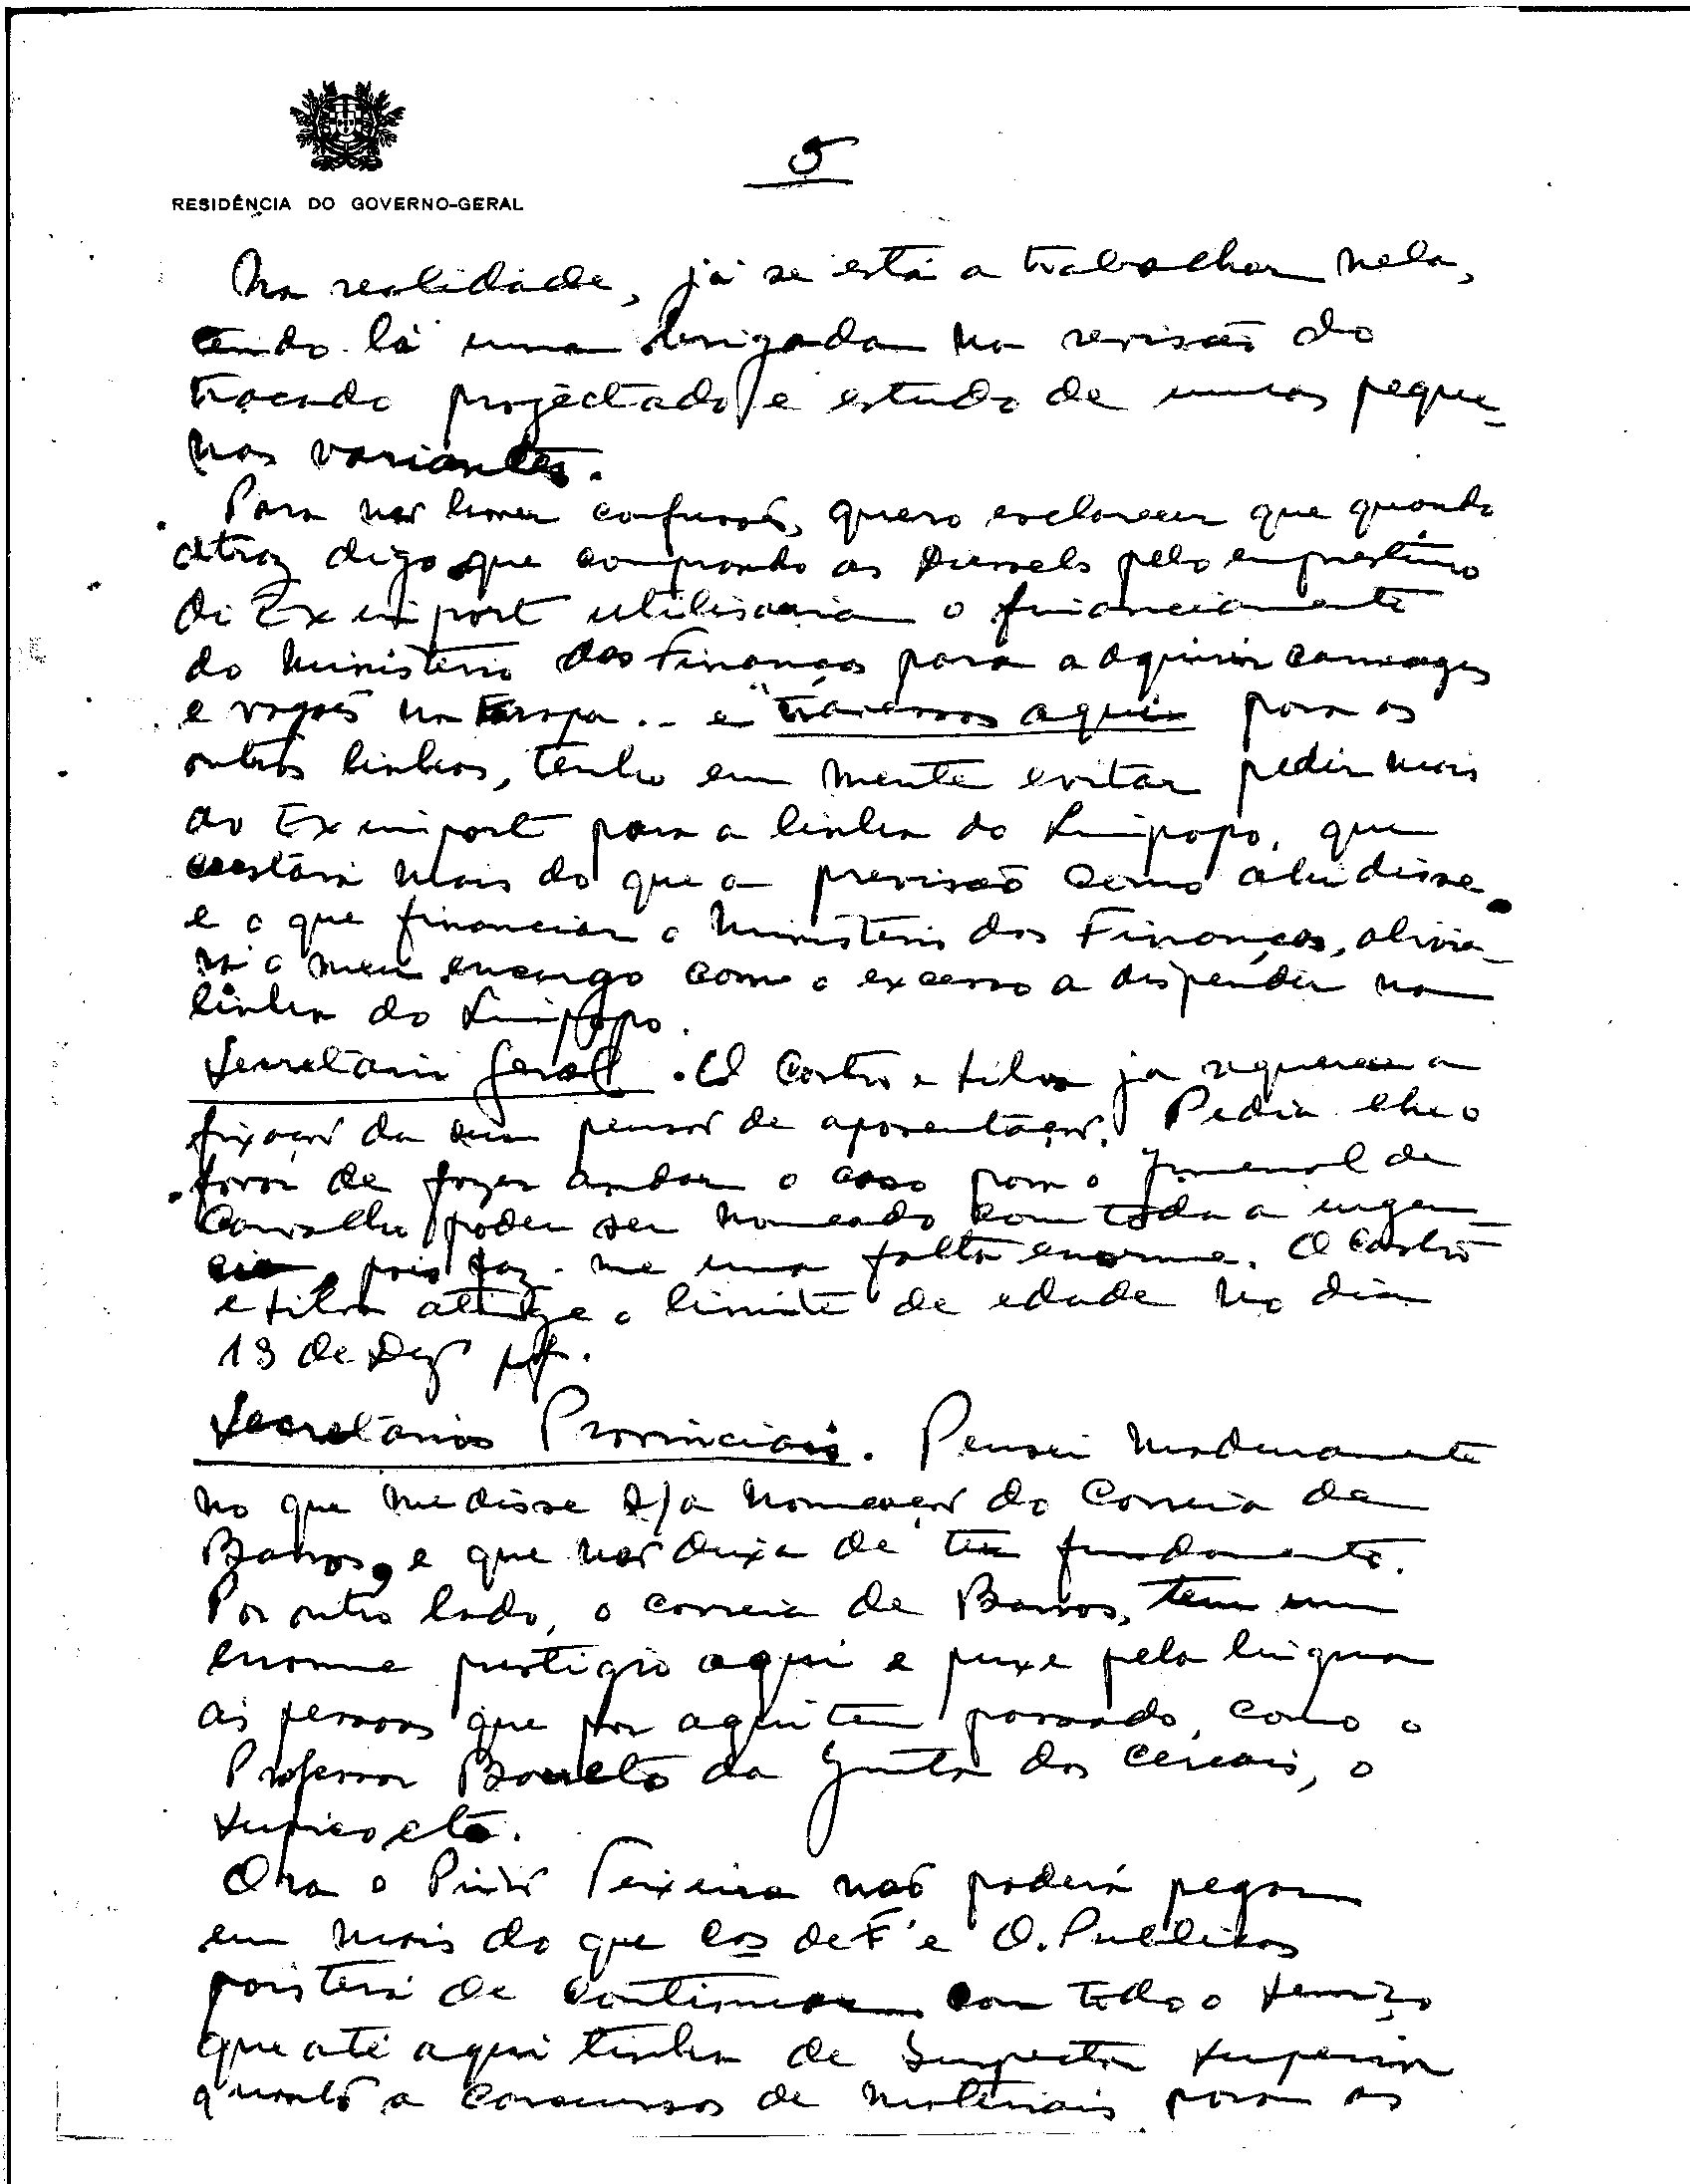 5
RESIDÊNCIA DO GOVERNO-GERAL
Na realidade, já se está a trabalhar nela,
tendo lá uma brigada na revisão do
traçado projectado e estudo de umas peque-
nas variantes.
Para não haver confusões, quero esclarecer que quando
atraz digo que comprando as Diesels pelo emprestimo
do Eximport utilisaria o financiamento
do Ministério das Finanças para adquirir carruagens
e vagões na Europa .. e travessas aqui para as
outras linhas, tenho em mente evitar pedir mais
ao Eximport para a linha do Limpopo, que
custará mais do que a previsão como ahi disse
e o que financiar o Ministério das Finanças, alivia-
rá o meu encargo com o excesso a dispender na
linha do Limpopo.
Secretário Geral. O Castro e Silva já requereu a
fixação da sua pensão de aposentação. Pedia-lhe o
favor de fazer andar o caso para o Juvenal de
Carvalho poder ser nomeado com toda a urgen-
cia, pois faz-me uma falta enorme. O Castro
e Silva atinge o limite de edade no dia
13 de Dezº pf.
Secretários Provinciais. Pensei maduramente
no que me disse s/a nomeação do Correia de
Barros, e que não deixa de ter fundamento.
Por outro lado, o Correia de Barros, tem um
enorme prestigio aqui e puxe pela lingua
ás pessoas que por aqui tem passado, como o
Professor Barreto da Junta dos Cereais, o
Supico etc.
Ora o Pinto Teixeira não poderá pegar
em mais do que C os de F e O. Publicas
pois terá de continuar com todo o serviço
que até aqui tinha de Inspector Superior
quanto a concursos de materiais para os